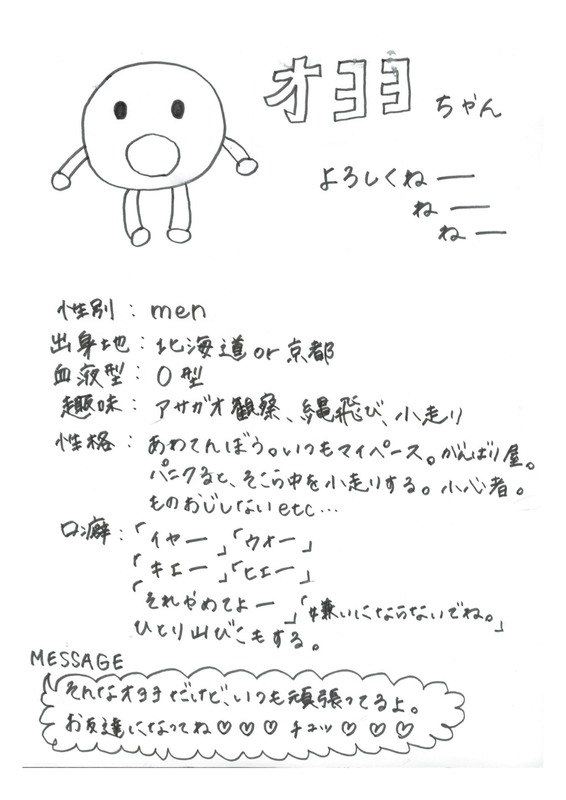 オヨヨちゃん
よろしくねー
ねー
ねー
性別：men
出身地：北海道or京都
血液型：O型
趣味：アサガオ観察、縄飛び、小走り
性格：あわてんぼう。いつもマイペース。がんばり屋。
パニクると、そこら中を小走りする。小心者。
ものおじしないetc…
口癖：「イヤー」「ウォー」
「キエー」「ヒエー」
「それやめてよー」「嫌いにならないでね。」
ひとり山びこもする。
MESSAGE
そんなオヨヨだけど、いつも頑張ってるよ。
お友達になってね♡♡♡ チュッ♡♡♡